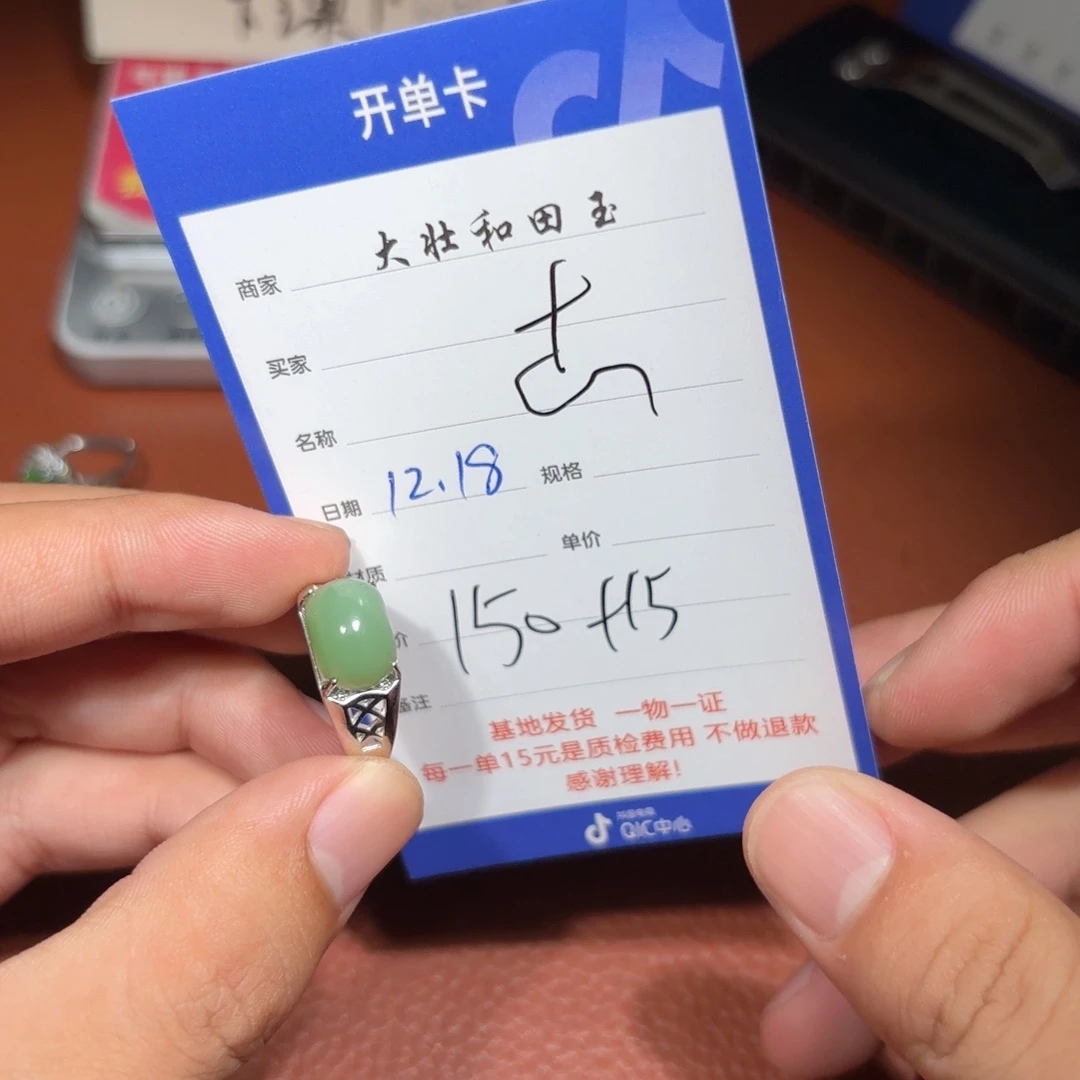 开单卡
商家 大壮和田玉
买家
名称
日期 12.18 规格
材质 单价
价 150+15
备注
基地发货 一物一证
每一单15元是质检费用 不做退款
感谢理解!
QIC中心